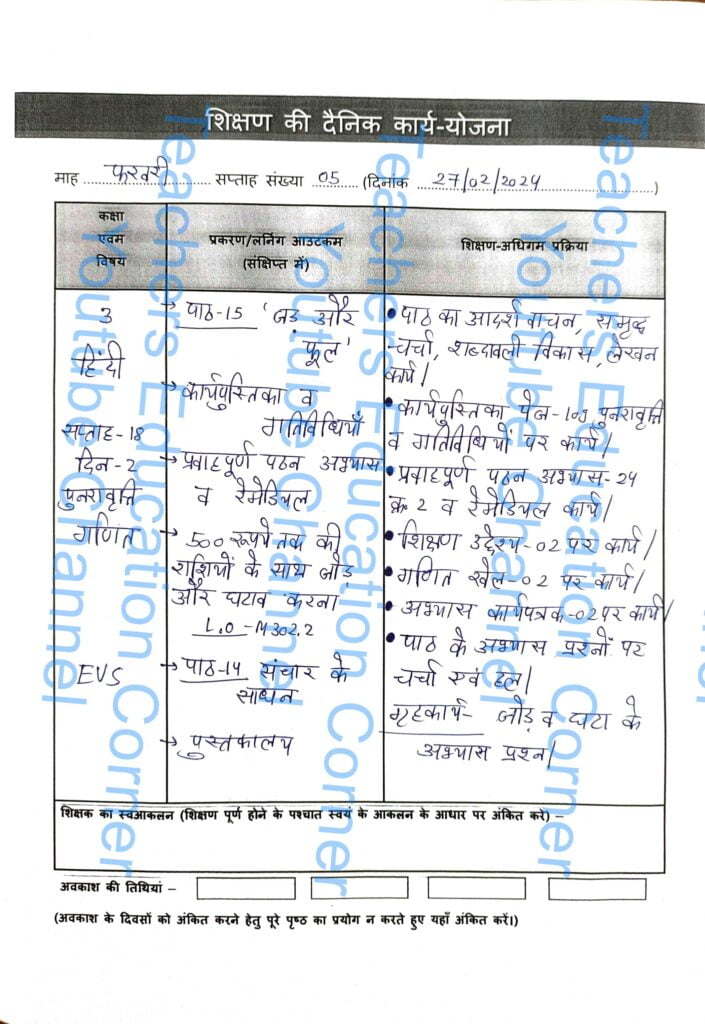 शिक्षण की दैनिक कार्य-योजना
माह फरवरी सप्ताह संख्या 05 (दिनांक 27/02/2024)
कक्षा
एवम
विषय
प्रकरण/लर्निंग आउटकम
(संक्षिप्त में)
शिक्षण-अधिगम प्रक्रिया
3
हिंदी
सप्ताह-18
दिन-2
पुनरावृत्ति
→ पाठ-15 'जड़ और
फूल'
→ कार्यपुस्तिका व
गतिविधियाँ
→ प्रवाहपूर्ण पठन अभ्यास
व रेमेडियल
• पाठ का आदर्श वाचन, समृद्ध
चर्चा, शब्दावली विकास, लेखन
कार्य।
• कार्यपुस्तिका पेज-109 पुनरावृत्ति
व गतिविधियों पर कार्य।
• प्रवाहपूर्ण पठन अभ्यास-24
क्र. 2 व रेमेडियल कार्य।
गणित
→ 500 रूपये तक की
राशियों के साथ जोड़
और घटाव करना
L.O-M302.2
• शिक्षण उद्देश्य-02 पर कार्य।
• गणित खेल-02 पर कार्य।
• अभ्यास कार्यपत्रक-02 पर कार्य।
EVS
→ पाठ-14 संचार के
साधन
→ पुस्तकालय
• पाठ के अभ्यास प्रश्नों पर
चर्चा एवं हल।
गृहकार्य- जोड़ व घटा के
अभ्यास प्रश्न।
शिक्षक का स्वआकलन (शिक्षण पूर्ण होने के पश्चात स्वयं के आकलन के आधार पर अंकित करे) –
अवकाश की तिथियां –
(अवकाश के दिवसों को अंकित करने हेतु पूरे पृष्ठ का प्रयोग न करते हुए यहाँ अंकित करें।)
Teachers Education Corner
Youtube Channel
Teachers Education Corner
Youtube Channel